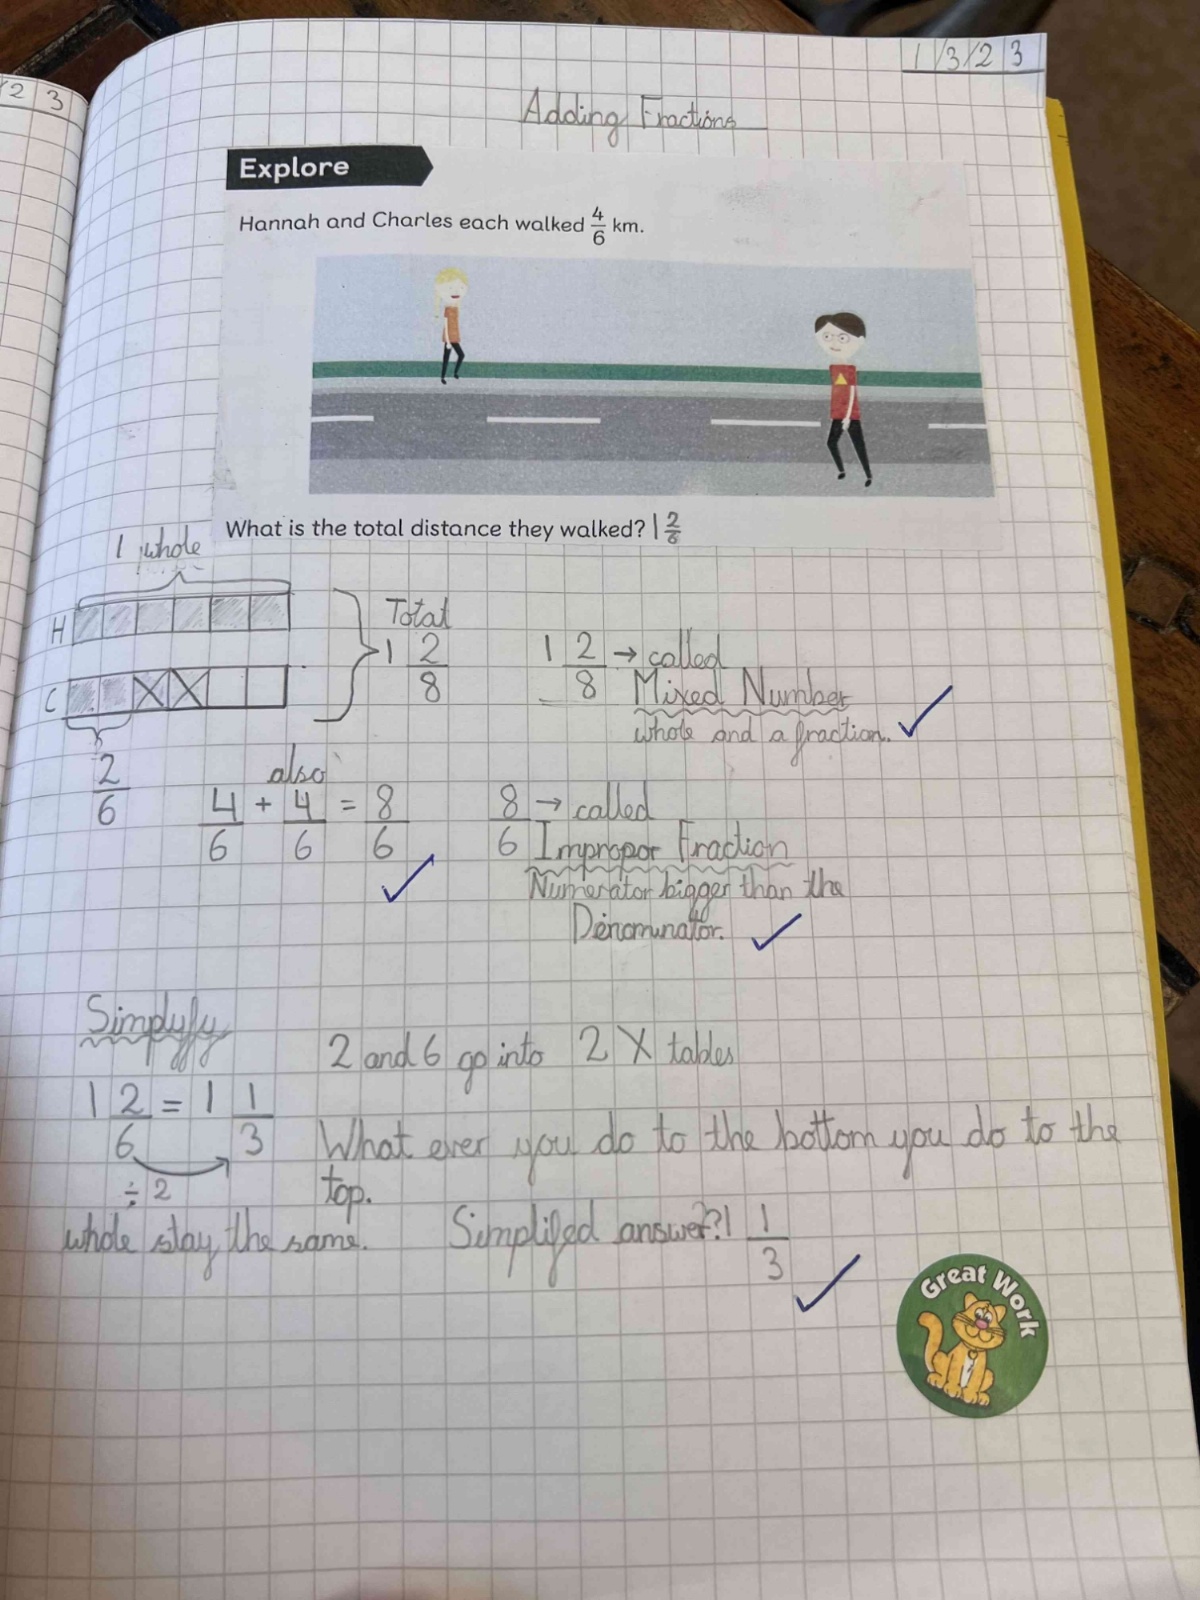 /2 3
1/3/2 3
Adding Fractions
Explore
Hannah and Charles each walked 4/6 km.
What is the total distance they walked? 1 2/6
1 whole
H
C
Total
1 2/8
2/6
1 2/8 → called
Mixed Number
whole and a fraction.
also
4/6 + 4/6 = 8/6
8/6 → called
Impropor Fraction
Numerator bigger than the
Denominator.
Simplyfy
2 and 6 go into 2 X tables
1 2/6 = 1 1/3
÷ 2
What ever you do to the bottom you do to the
top.
whole stay the same.
Simplifed answer? 1 1/3
Great Work